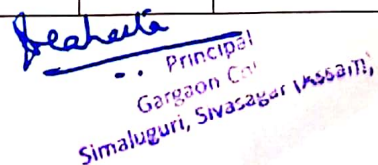 Principal
Gargaon Col
Simaluguri, Sivasagar (Assam),